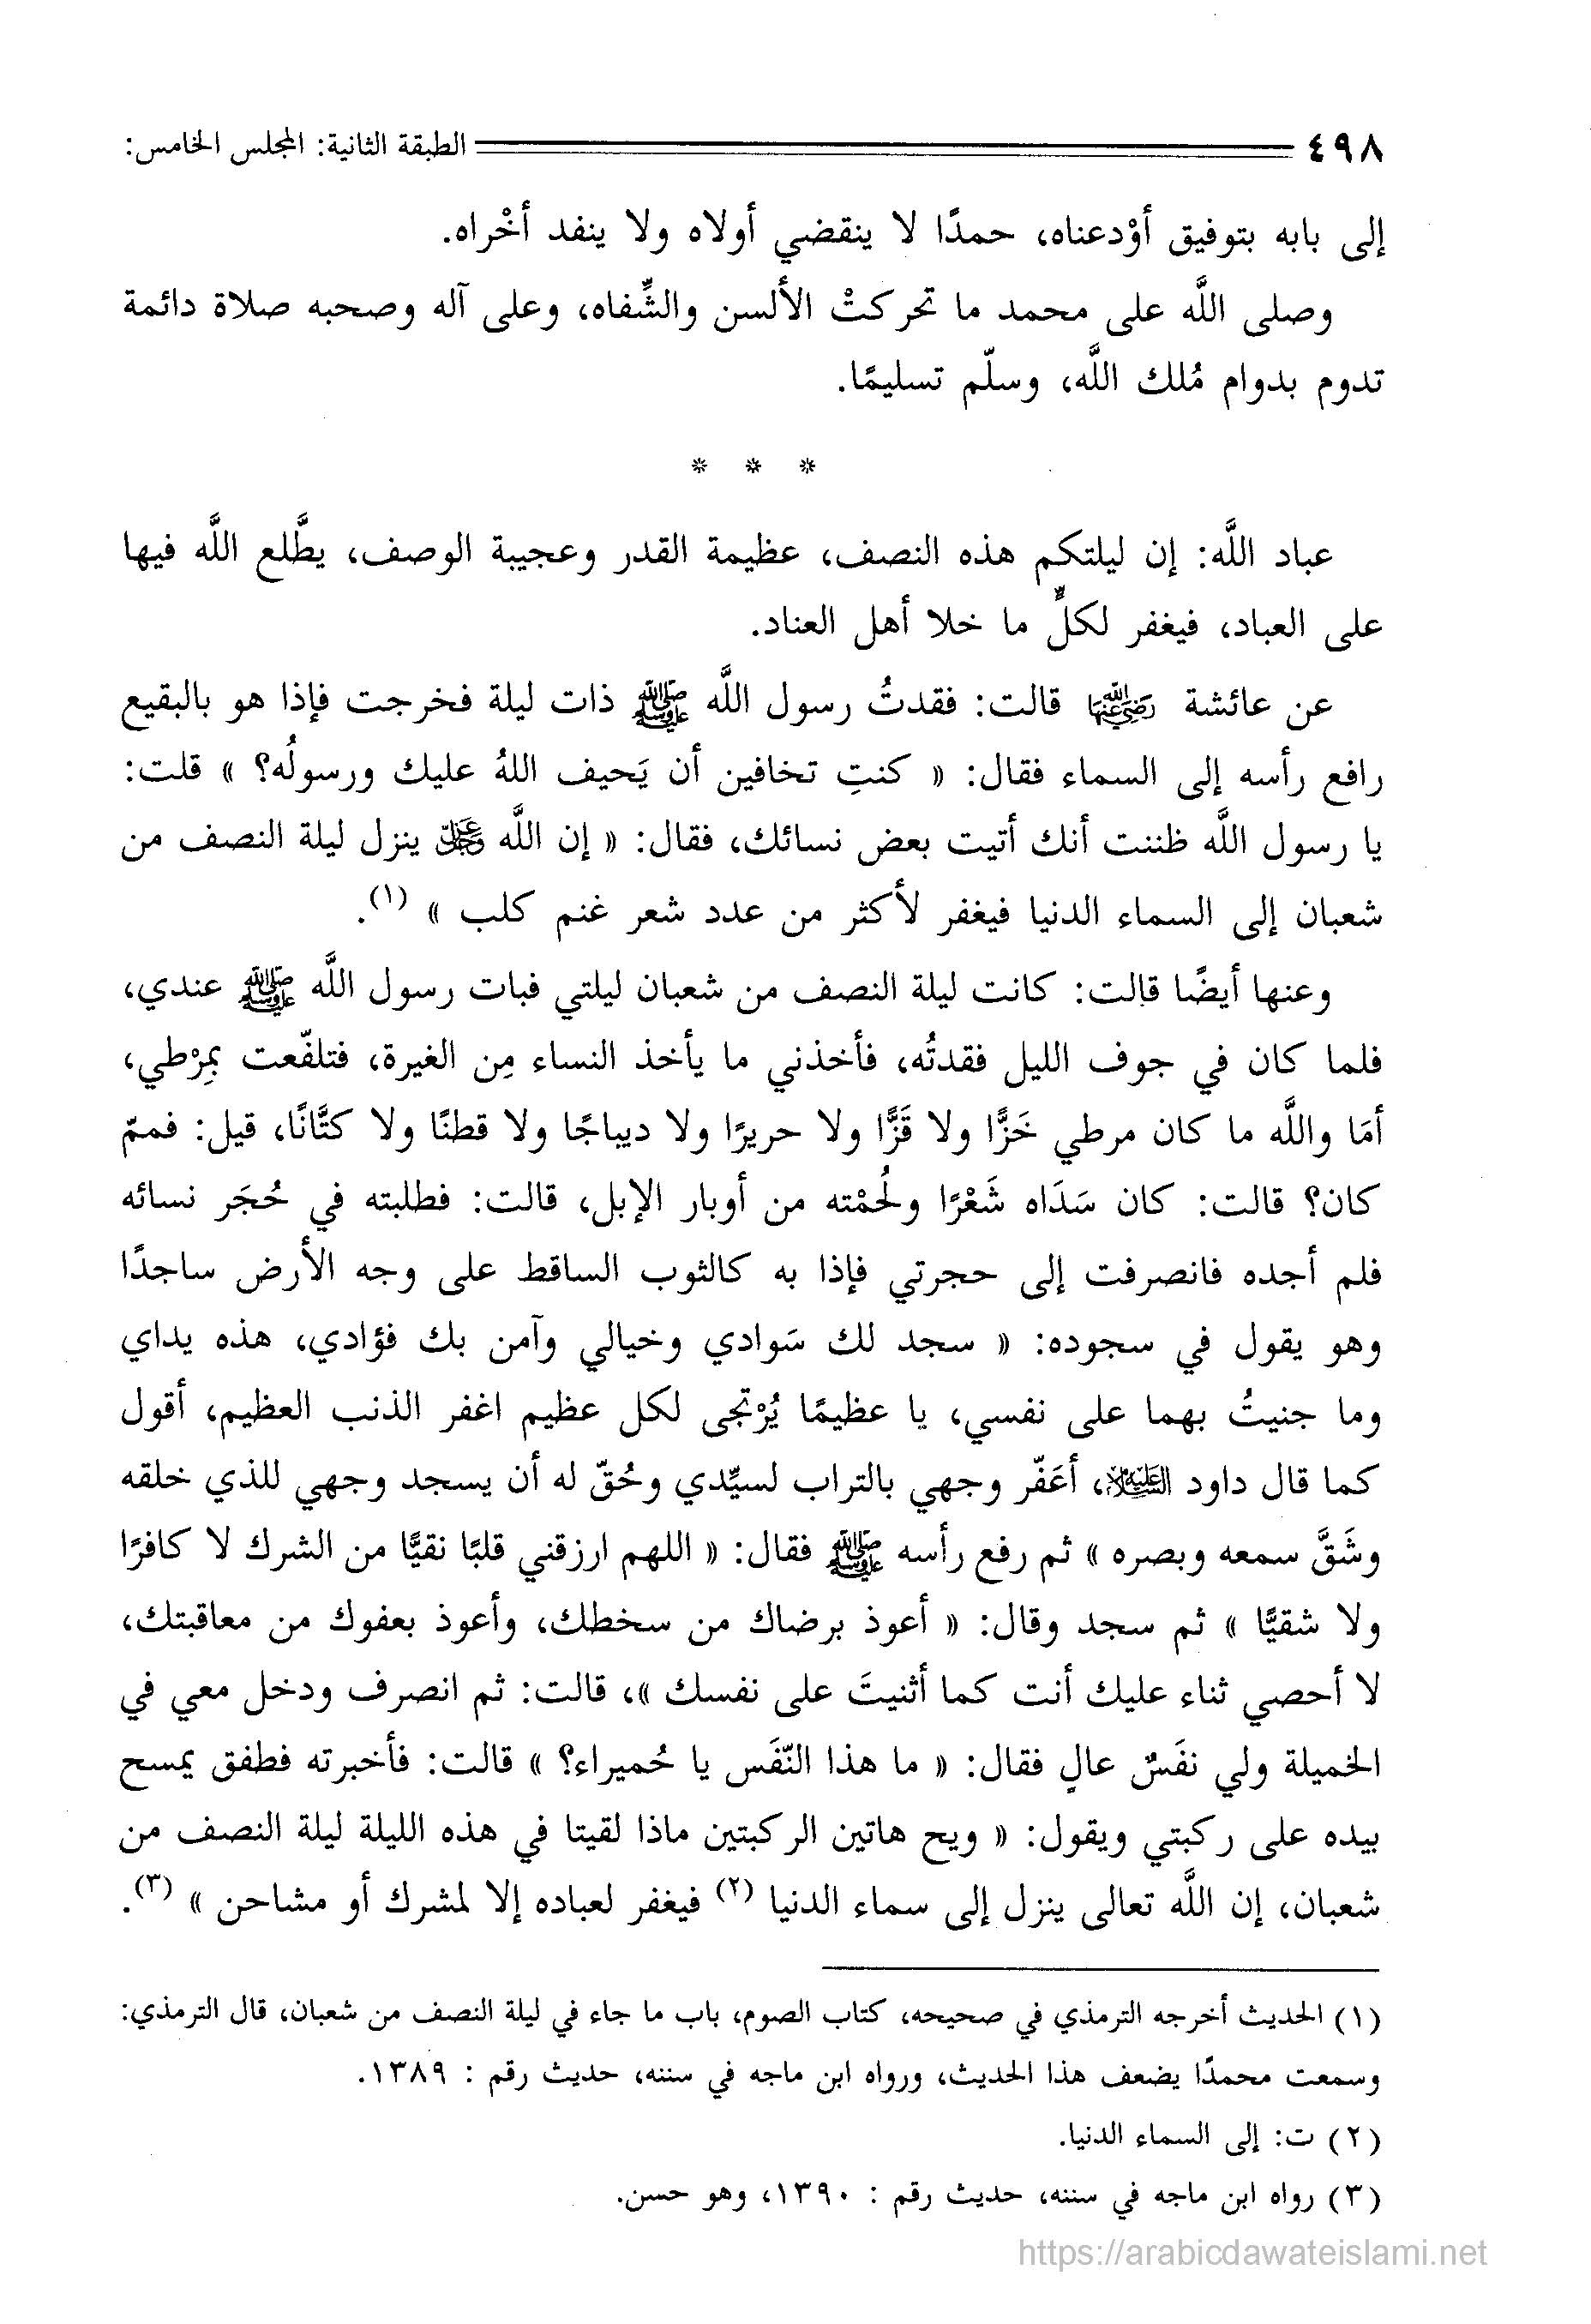 ٤٩٨ الطبقة الثانية: المجلس الخامس:
إلى بابه بتوفيق أوْدعناه، حمدًا لا ينقضي أولاه ولا ينفد أخْراه.
وصلى اللَّه على محمد ما تحركتْ الألسن والشِّفاه، وعلى آله وصحبه صلاة دائمة
تدوم بدوام مُلك اللَّه، وسلّم تسليمًا.
* * *
عباد اللَّه: إن ليلتكم هذه النصف، عظيمة القدر وعجيبة الوصف، يطَّلع اللَّه فيها
على العباد، فيغفر لكلٍّ ما خلا أهل العناد.
عن عائشة رضي الله عنها قالت: فقدتُ رسول اللَّه ﷺ ذات ليلة فخرجت فإذا هو بالبقيع
رافع رأسه إلى السماء فقال: « كنتِ تخافين أن يَحيف اللهُ عليك ورسولُه؟ » قلت:
يا رسول اللَّه ظننت أنك أتيت بعض نسائك، فقال: « إن اللَّه عز وجل ينزل ليلة النصف من
شعبان إلى السماء الدنيا فيغفر لأكثر من عدد شعر غنم كلب » (١).
وعنها أيضًا قالت: كانت ليلة النصف من شعبان ليلتي فبات رسول اللَّه ﷺ عندي،
فلما كان في جوف الليل فقدتُه، فأخذني ما يأخذ النساء مِن الغيرة، فتلفّعت بمِرْطي،
أمَا واللَّه ما كان مرطي خَزًّا ولا قَزًّا ولا حريرًا ولا ديباجًا ولا قطنًا ولا كتَّانًا، قيل: فممّ
كان؟ قالت: كان سَدَاه شَعْرًا ولُحمْته من أوبار الإبل، قالت: فطلبته في حُجَر نسائه
فلم أجده فانصرفت إلى حجرتي فإذا به كالثوب الساقط على وجه الأرض ساجدًا
وهو يقول في سجوده: « سجد لك سَوادي وخيالي وآمن بك فؤادي، هذه يداي
وما جنيتُ بهما على نفسي، يا عظيمًا يُرْتجى لكل عظيم اغفر الذنب العظيم، أقول
كما قال داود عليه السلام، أعَفّر وجهي بالتراب لسيِّدي وحُقّ له أن يسجد وجهي للذي خلقه
وشَقَّ سمعه وبصره » ثم رفع رأسه ﷺ فقال: « اللهم ارزقني قلبًا نقيًّا من الشرك لا كافرًا
ولا شقيًّا » ثم سجد وقال: « أعوذ برضاك من سخطك، وأعوذ بعفوك من معاقبتك،
لا أحصي ثناء عليك أنت كما أثنيتَ على نفسك »، قالت: ثم انصرف ودخل معي في
الخميلة ولي نفَسٌ عالٍ فقال: « ما هذا النّفَس يا حُميراء؟ » قالت: فأخبرته فطفق يمسح
بيده على ركبتي ويقول: « ويح هاتين الركبتين ماذا لقيتا في هذه الليلة ليلة النصف من
شعبان، إن اللَّه تعالى ينزل إلى سماء الدنيا (٢) فيغفر لعباده إلا لمشرك أو مشاحن » (٣).
(١) الحديث أخرجه الترمذي في صحيحه، كتاب الصوم، باب ما جاء في ليلة النصف من شعبان، قال الترمذي:
وسمعت محمدًا يضعف هذا الحديث، ورواه ابن ماجه في سننه، حديث رقم : ١٣٨٩.
(٢) ت: إلى السماء الدنيا.
(٣) رواه ابن ماجه في سننه، حديث رقم : ١٣٩٠، وهو حسن.
https://arabicdawateislami.net